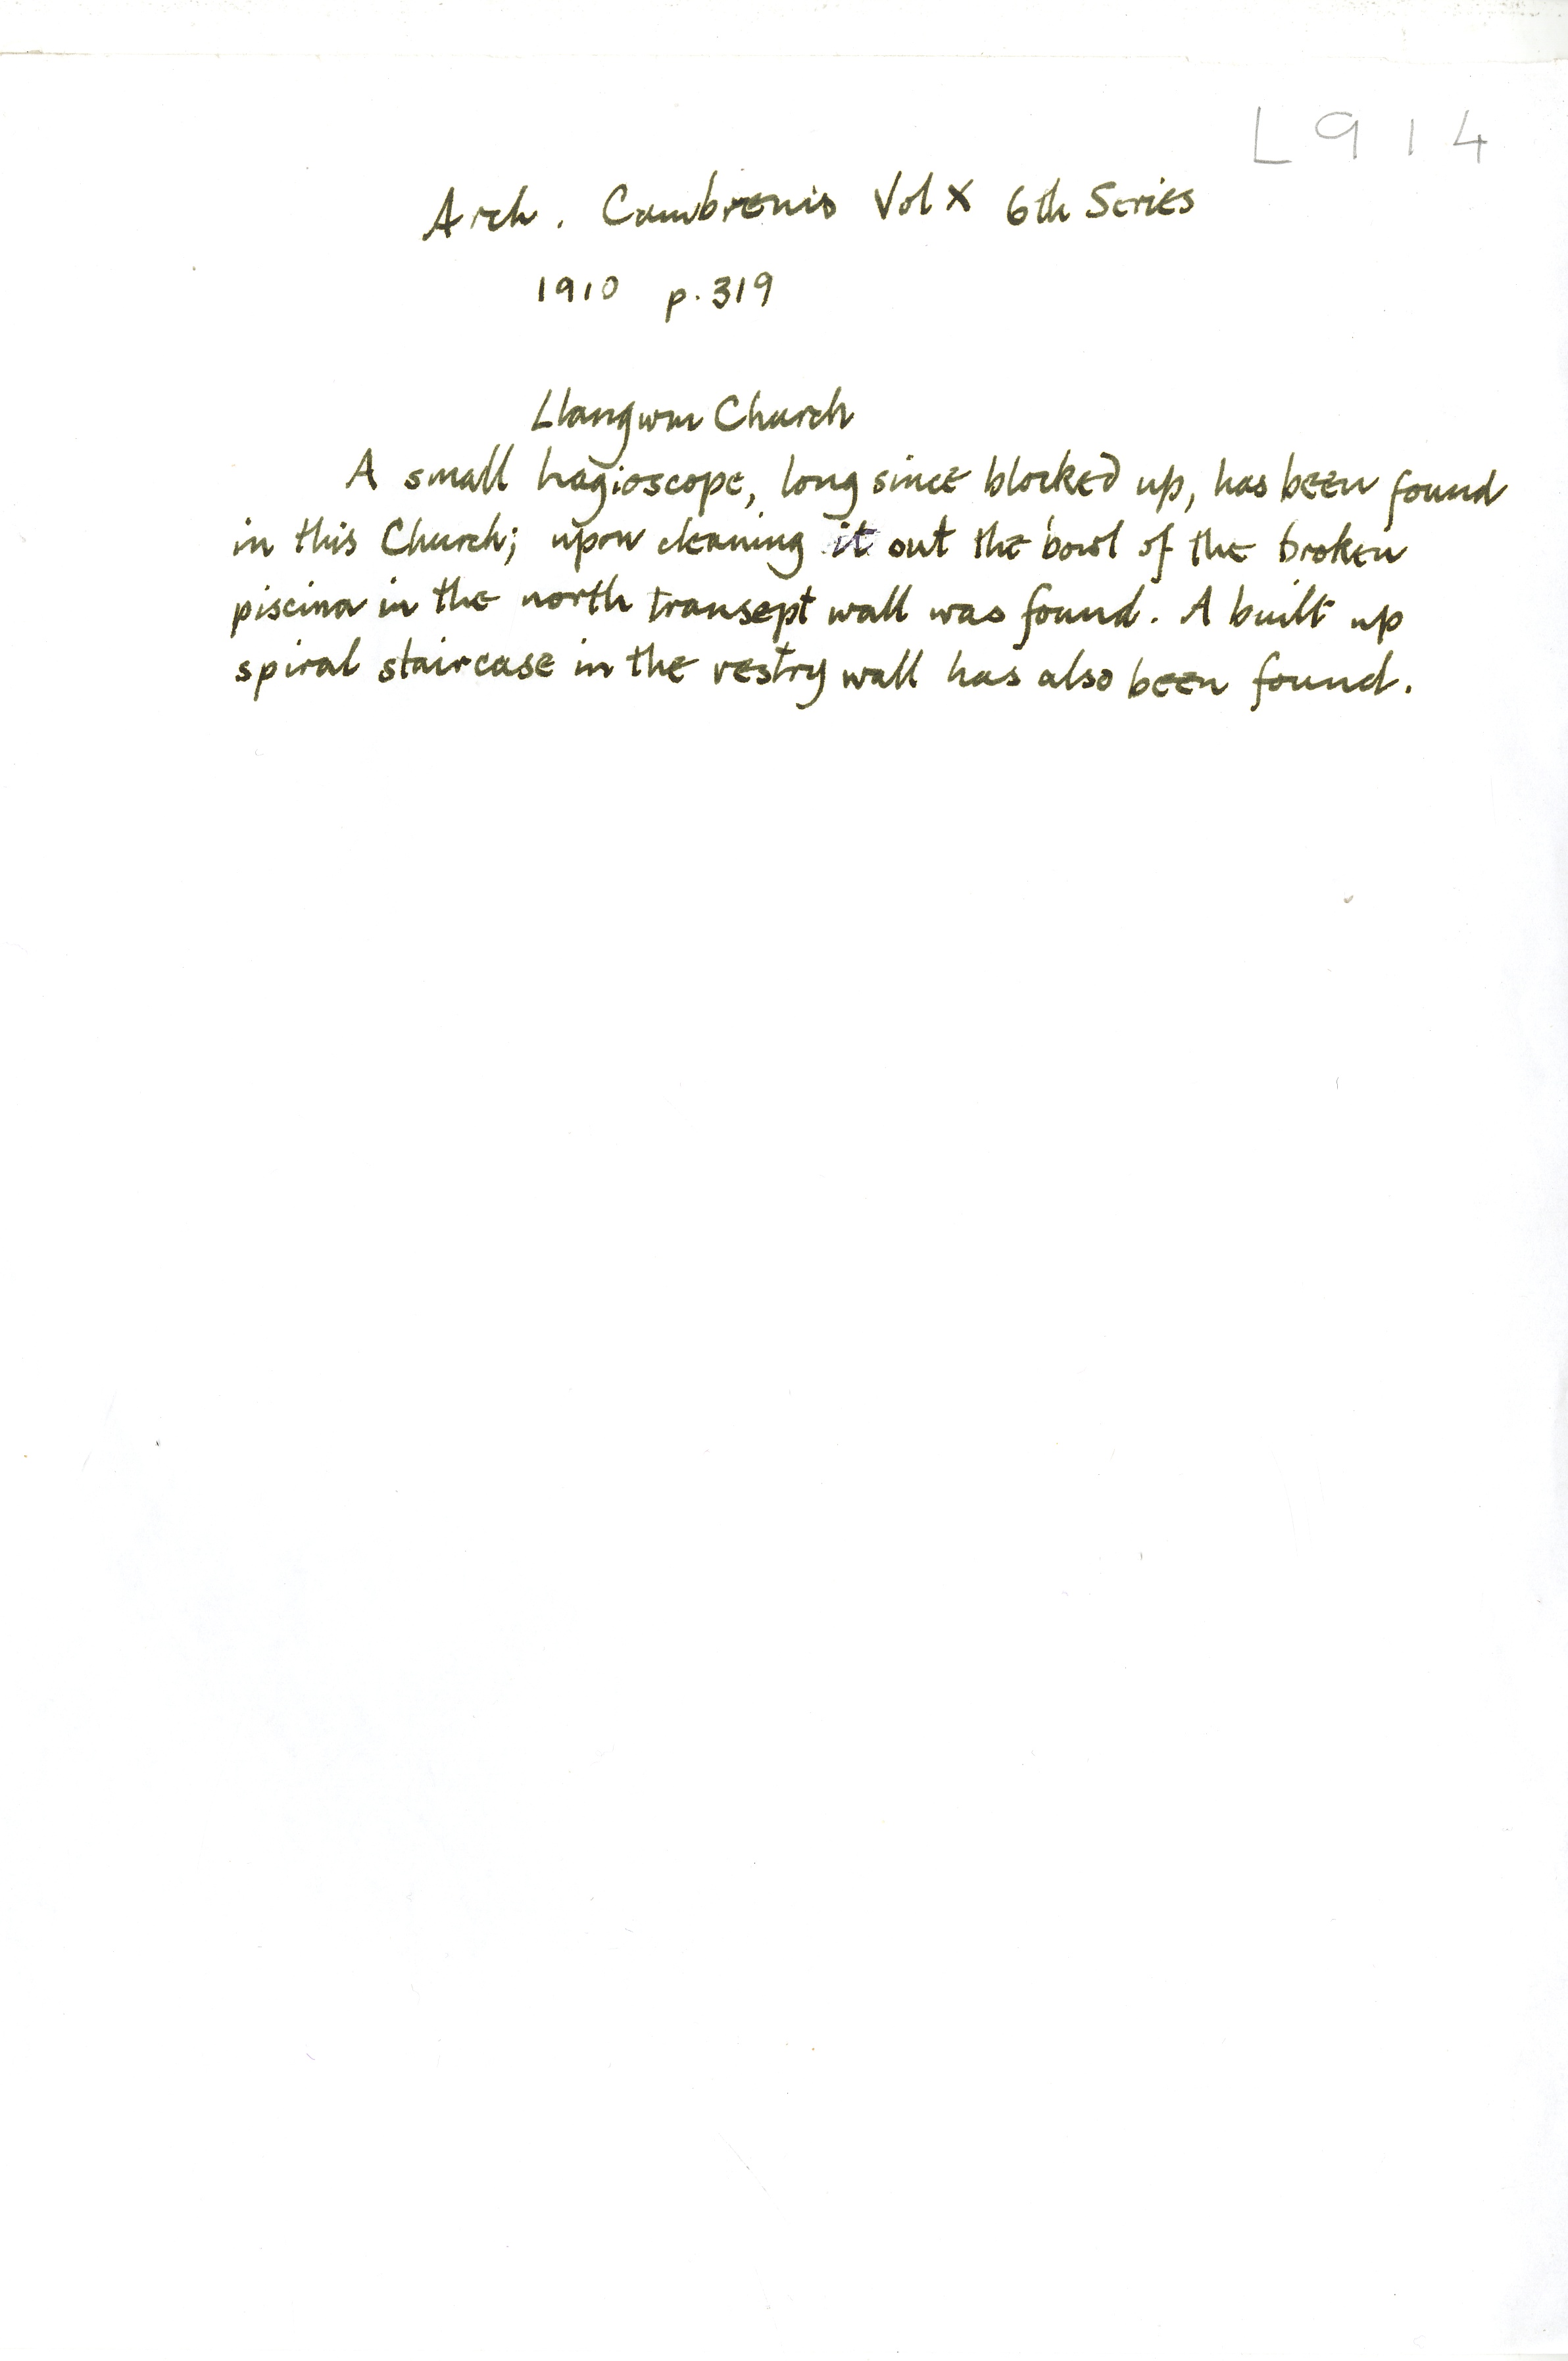 L914
Arch. Cambrenis Vol X 6th Series
1910 p.319
Llangwm Church
A small hagioscope, long since blocked up, has been found
in this Church; upon cleaning it out the bowl of the broken
piscina in the north transept wall was found. A built up
spiral staircase in the vestry wall has also been found.